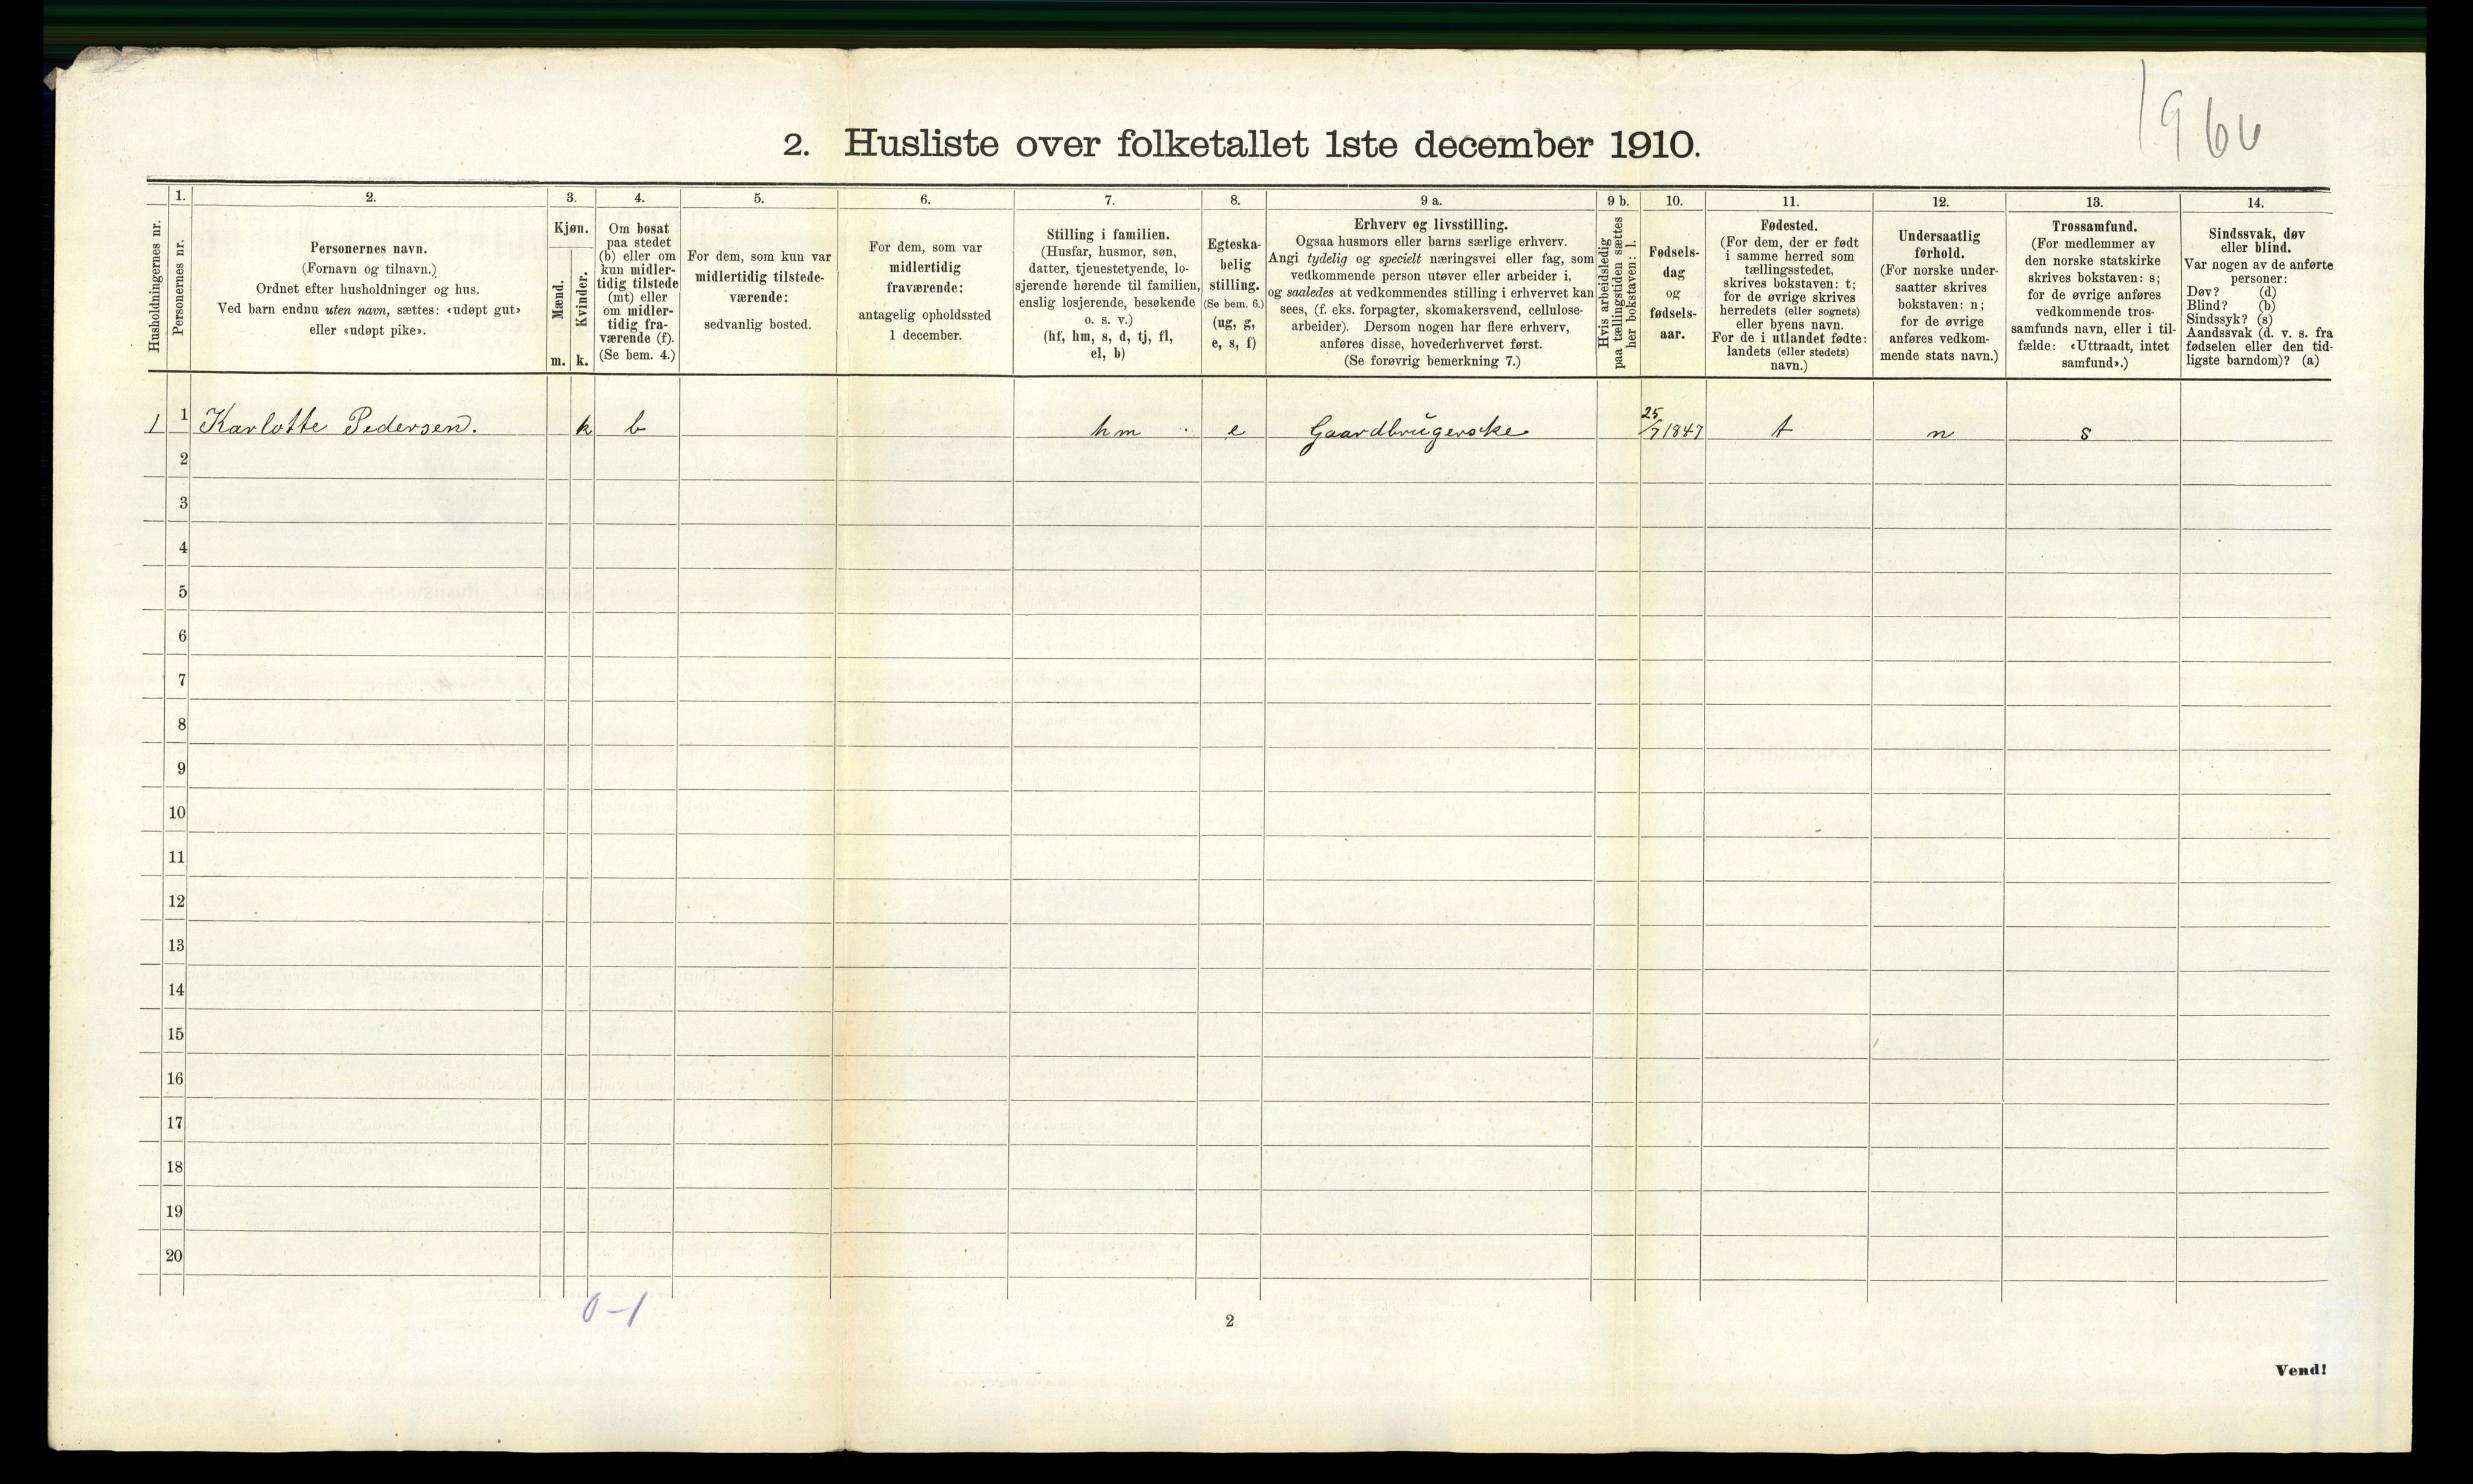 1966
2. Husliste over folketallet 1ste december 1910.
Husholdningernes nr.
1.
Personernes nr.
2.
Personernes navn.
(Fornavn og tilnavn.)
Ordnet efter husholdninger og hus.
Ved barn endnu uten navn, sættes: «udøpt gut»
eller «udøpt pike».
3.
Kjøn.
Mænd.
Kvinder.
m. k.
4.
Om bosat
paa stedet
(b) eller om
kun midler-
tidig tilstede
(mt) eller
om midler-
tidig fra-
værende (f).
(Se bem. 4.)
5.
For dem, som kun var
midlertidig tilstede-
værende:
sedvanlig bosted.
6.
For dem, som var
midlertidig
fraværende:
antagelig opholdssted
1 december.
7.
Stilling i familien.
(Husfar, husmor, søn,
datter, tjenestetyende, lo-
sjerende hørende til familien,
enslig losjerende, besøkende
o. s. v.)
(hf, hm, s, d, tj, fl,
el, b)
8.
Egteska-
belig
stilling.
(Se bem. 6.)
(ug, g,
e, s, f)
9 a.
Erhverv og livsstilling.
Ogsaa husmors eller barns særlige erhverv.
Angi tydelig og specielt næringsvei eller fag, som
vedkommende person utøver eller arbeider i,
og saaledes at vedkommendes stilling i erhvervet kan
sees, (f. eks. forpagter, skomakersvend, cellulose-
arbeider). Dersom nogen har flere erhverv,
anføres disse, hovederhvervet først.
(Se forøvrig bemerkning 7.)
9 b.
Hvis arbeidsledig
paa tællingstiden sættes
her bokstaven: l.
10.
Fødsels-
dag
og
fødsels-
aar.
11.
Fødested.
(For dem, der er født
i samme herred som
tællingsstedet,
skrives bokstaven: t;
for de øvrige skrives
herredets (eller sognets)
eller byens navn.
For de i utlandet fødte:
landets (eller stedets)
navn.)
12.
Undersaatlig
forhold.
(For norske under-
saatter skrives
bokstaven: n;
for de øvrige
anføres vedkom-
mende stats navn.)
13.
Trossamfund.
(For medlemmer av
den norske statskirke
skrives bokstaven: s;
for de øvrige anføres
vedkommende tros-
samfunds navn, eller i til-
fælde: «Uttraadt, intet
samfund».)
14.
Sindssvak, døv
eller blind.
Var nogen av de anførte
personer:
Døv? (d)
Blind? (b)
Sindssyk? (s)
Aandssvak (d. v. s. fra
fødselen eller den tid-
ligste barndom)? (a)
1 1 Karlotte Pedersen. k b hm e Gaardbrugerske 25/7 1847 t n s
2
3
4
5
6
7
8
9
10
11
12
13
14
15
16
17
18
19
20
0-1
2
Vend!